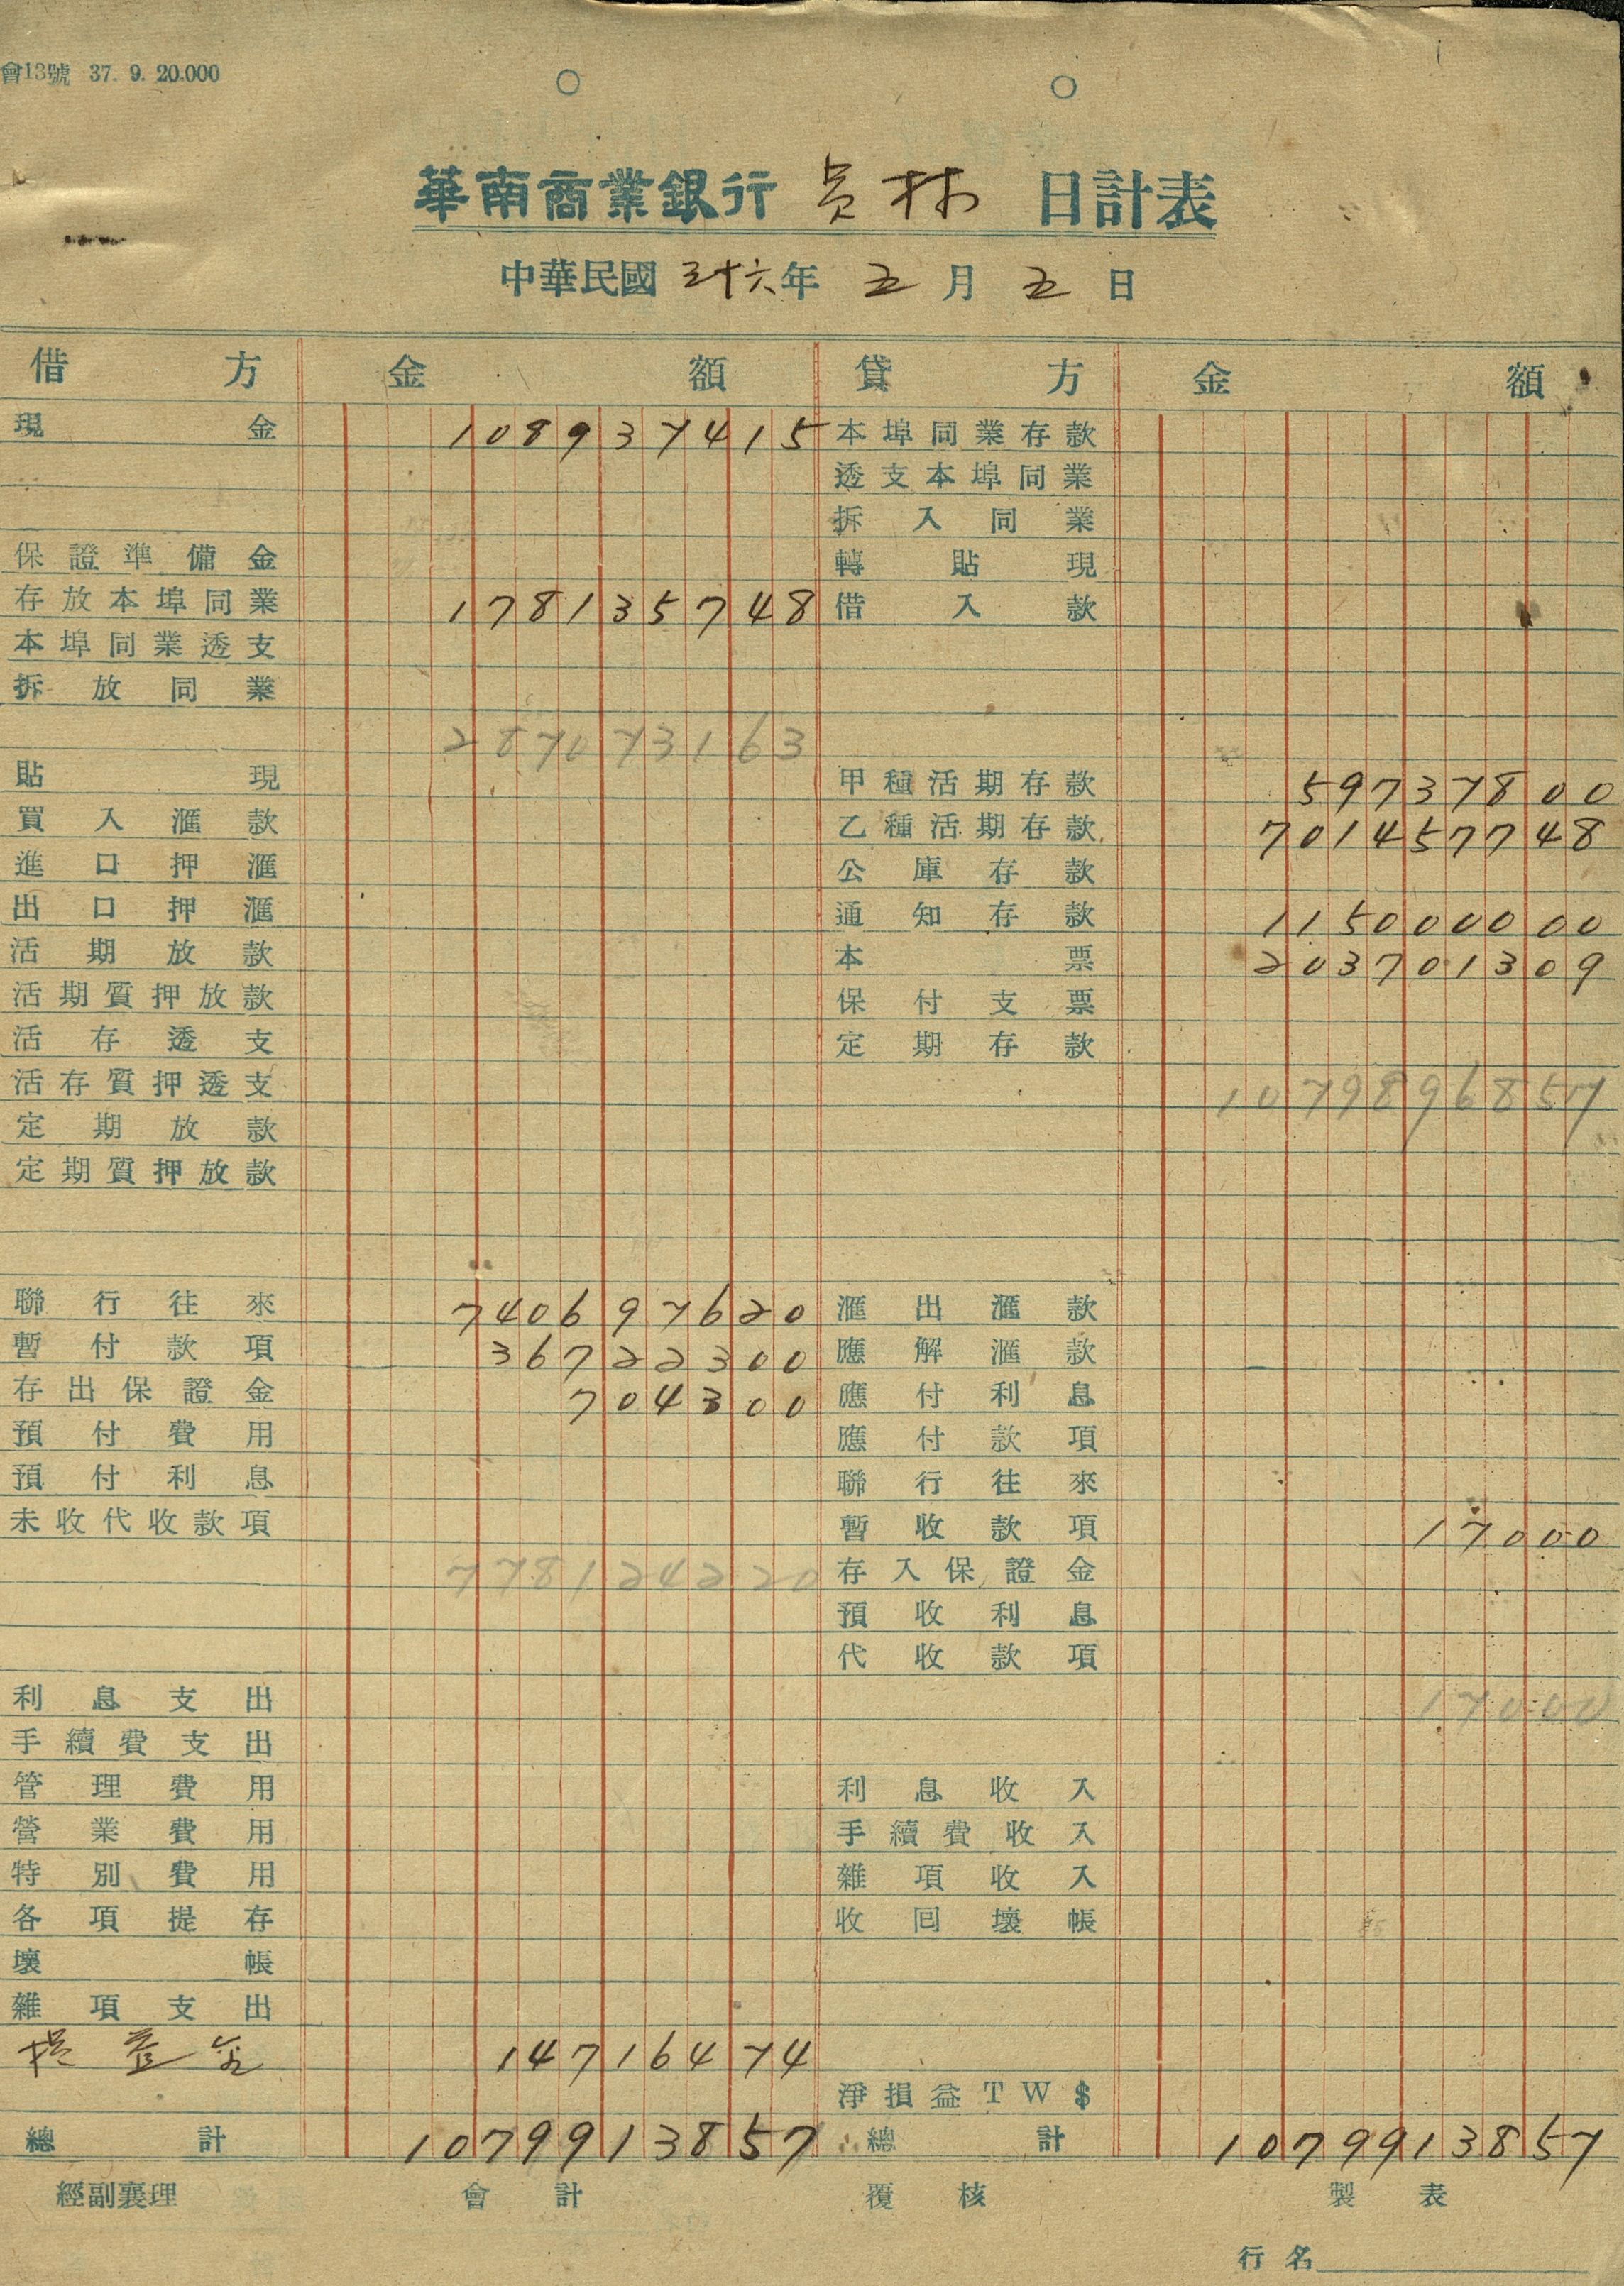 會13號 37. 9. 20.000
華南商業銀行 員林 日計表
中華民國 三十六年 五月 五日
借方 金額 貸方 金額
現金 108937415 本埠同業存款
透支本埠同業
拆入同業
保證準備金 轉貼現
存放本埠同業 178135748 借入款
本埠同業透支
拆放同業
287073163
貼現 甲種活期存款 59737800
買入滙款 乙種活期存款 701457748
進口押滙 公庫存款
出口押滙 通知存款 115000000
活期放款 本票 203701309
活期質押放款 保付支票
活存透支 定期存款
活存質押透支 1079896857
定期放款
定期質押放款
聯行往來 740697620 滙出滙款
暫付款項 36722300 應解滙款
存出保證金 704300 應付利息
預付費用 應付款項
預付利息 聯行往來
未收代收款項 暫收款項 17000
778124220 存入保證金
預收利息
代收款項
利息支出 17000
手續費支出
管理費用 利息收入
營業費用 手續費收入
特別費用 雜項收入
各項提存 收回壞帳
壞帳
雜項支出
損益金 14716474
淨損益TW$
總計 1079913857 總計 1079913857
經副襄理 會計 覆核 製表
行名